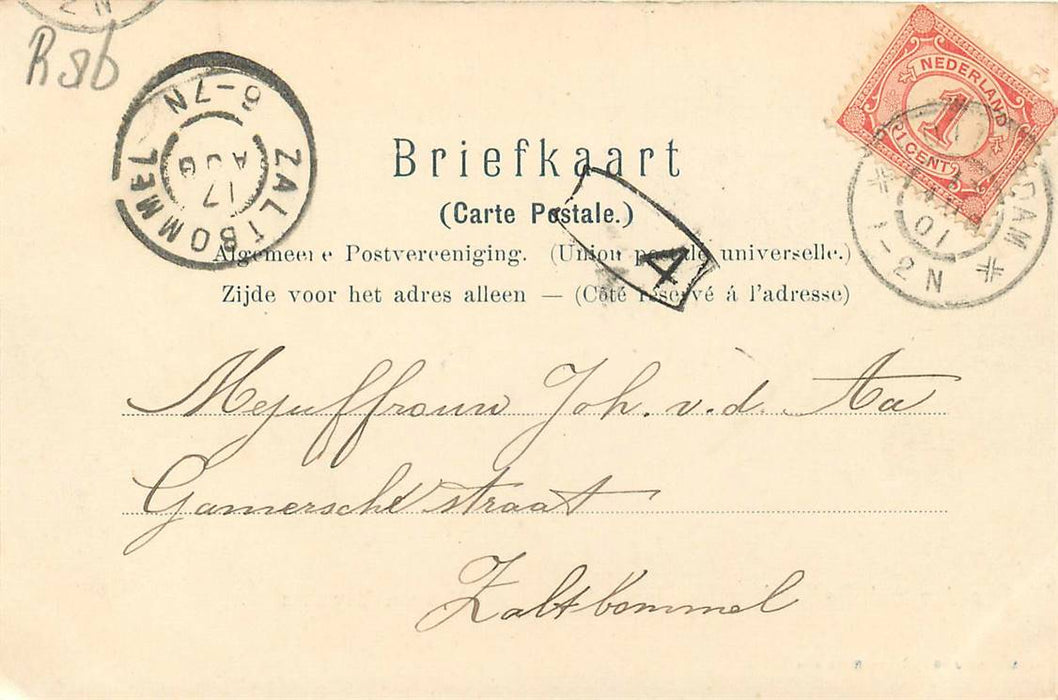 R 86
ZALTBOMMEL
6-7N
17
AUG
NEDERLAND
1
1 CENT
DAM
01
1-2N
Briefkaart
(Carte Postale.)
4
Algemeene Postvereeniging. (Union postale universelle.)
Zijde voor het adres alleen — (Côté réservé á l'adresse)
Mejuffrouw Joh. v.d. Aa
Gamersche straat
Zaltbommel